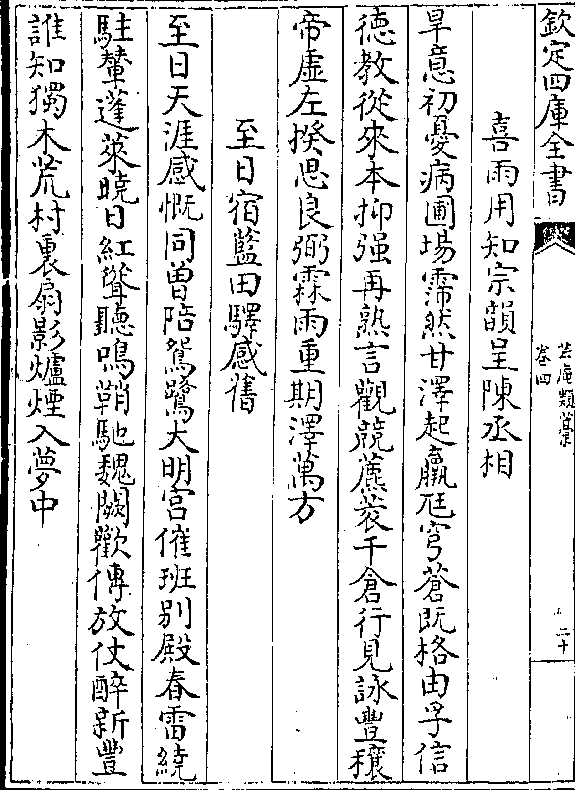 欽定四庫全書
芸庵類藁
卷四
二十
喜雨用知宗韻呈陳丞相
旱意初憂病圃場霈然甘澤起羸尫穹蒼既格由孚信
德教從來本抑强再熟言觀競藨蓘千倉行見詠豐穰
帝虛左揆思良弼霖雨重期澤萬方
至日宿藍田驛感舊
至日天涯感慨同曾陪鴛鷺大明宮催班别殿春雷繞
駐輦蓬萊曉日紅聳聽鳴鞘馳魏闕歡傳放仗醉新豐
誰知獨木荒村裏扇影爐煙入夢中